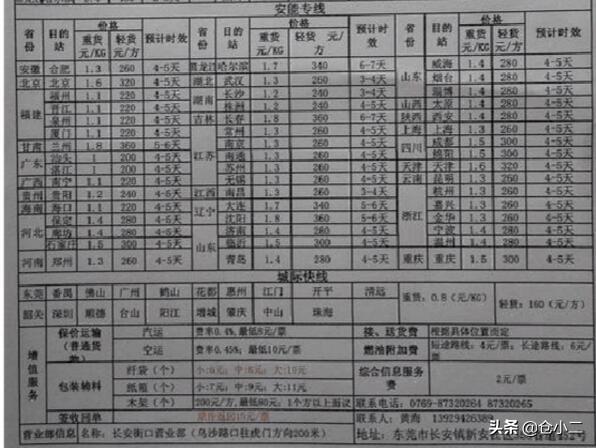 安能专线
省份 目的站 价格 重货元/KG 轻货元/方 预计时效 省份 目的站 价格 重货元/KG 轻货 元/方 预计时效 省份 目的站 价格 重货元/KG 轻货元/方 预计时效
安徽 合肥 1.3 260 4-5天 黑龙江 哈尔滨 1.7 340 6-7天 山东 威海 1.4 280 4-5天
北京 北京 1.6 320 4-5天 湖北 武汉 1.3 260 3-4天 烟台 1.4 280 4-5天
福建 福州 1.1 220 4-5天 湖南 长沙 1.2 240 3-4天 淄博 1.4 280 4-5天
晋江 1.1 220 4-5天 株洲 1.2 240 3-4天 山西 太原 1.4 280 4-5天
泉州 1.1 220 4-5天 吉林 长春 1.8 360 6-7天 陕西 西安 1.4 280 4-5天
厦门 1.1 220 4-5天 江苏 常州 1.3 260 4-5天 上海 上海 1.3 260 4-5天
甘肃 兰州 1.8 360 5-6天 南京 1.3 260 4-5天 四川 成都 1.5 300 4-5天
广东 汕头 1 200 4-5天 南通 1.3 260 4-5天 绵阳 1.5 300 4-5天
湛江 1 200 4-5天 苏州 1.3 260 4-5天 天津 天津 1.6 320 4-5天
广西 南宁 1.1 220 4-5天 无锡 1.3 260 4-5天 云南 昆明 1.3 260 4-5天
贵州 贵阳 1.2 240 4-5天 江西 南昌 1.3 260 3-4天 浙江 杭州 1.3 260 4-5天
海南 海口 1.1 220 4-5天 辽宁 大连 1.7 340 5-6天 嘉兴 1.3 260 4-5天
河北 保定 1.4 280 4-5天 沈阳 1.8 360 5-6天 金华 1.3 260 4-5天
廊坊 1.4 280 4-5天 山东 济南 1.4 280 4-5天 宁波 1.4 280 4-5天
石家庄 1.5 300 4-5天 临沂 1.5 300 4-5天 温州 1.4 280 4-5天
河南 郑州 1.3 260 4-5天 青岛 1.4 280 4-5天 重庆 重庆 1.5 300 4-5天
城际快线
东莞 番禺 佛山 广州 鹤山 花都 惠州 江门 开平 清远 重货:0.8(元/KG) 轻货:160(元/方)
韶关 深圳 顺德 台山 阳江 增城 肇庆 中山 珠海
增值服务 保价运输(普通货物) 汽运 费率0.4%,最低8元/票 接、送货费 根据具体位置而定
空运 费率0.45%,最低10元/票 燃油附加费 短途路线:4元/票;长途路线:6元/票
包装辅料 纤袋(个) 小:6元;中:8元;大:10元 综合信息服务费 2元/票
纸箱(个) 小:7元;中:9元;大:11元
木架(个) 200元/方,最低80元;1个方以上面议 联系电话:0769-87320264 87320265
签收回单 原件返回15元/票 联系人:黄海 13929426389
营业部信息 名称:长安街口营业部(乌沙路口往虎门方向200米) 地址:东莞市长安镇新安
头条 @仓小二